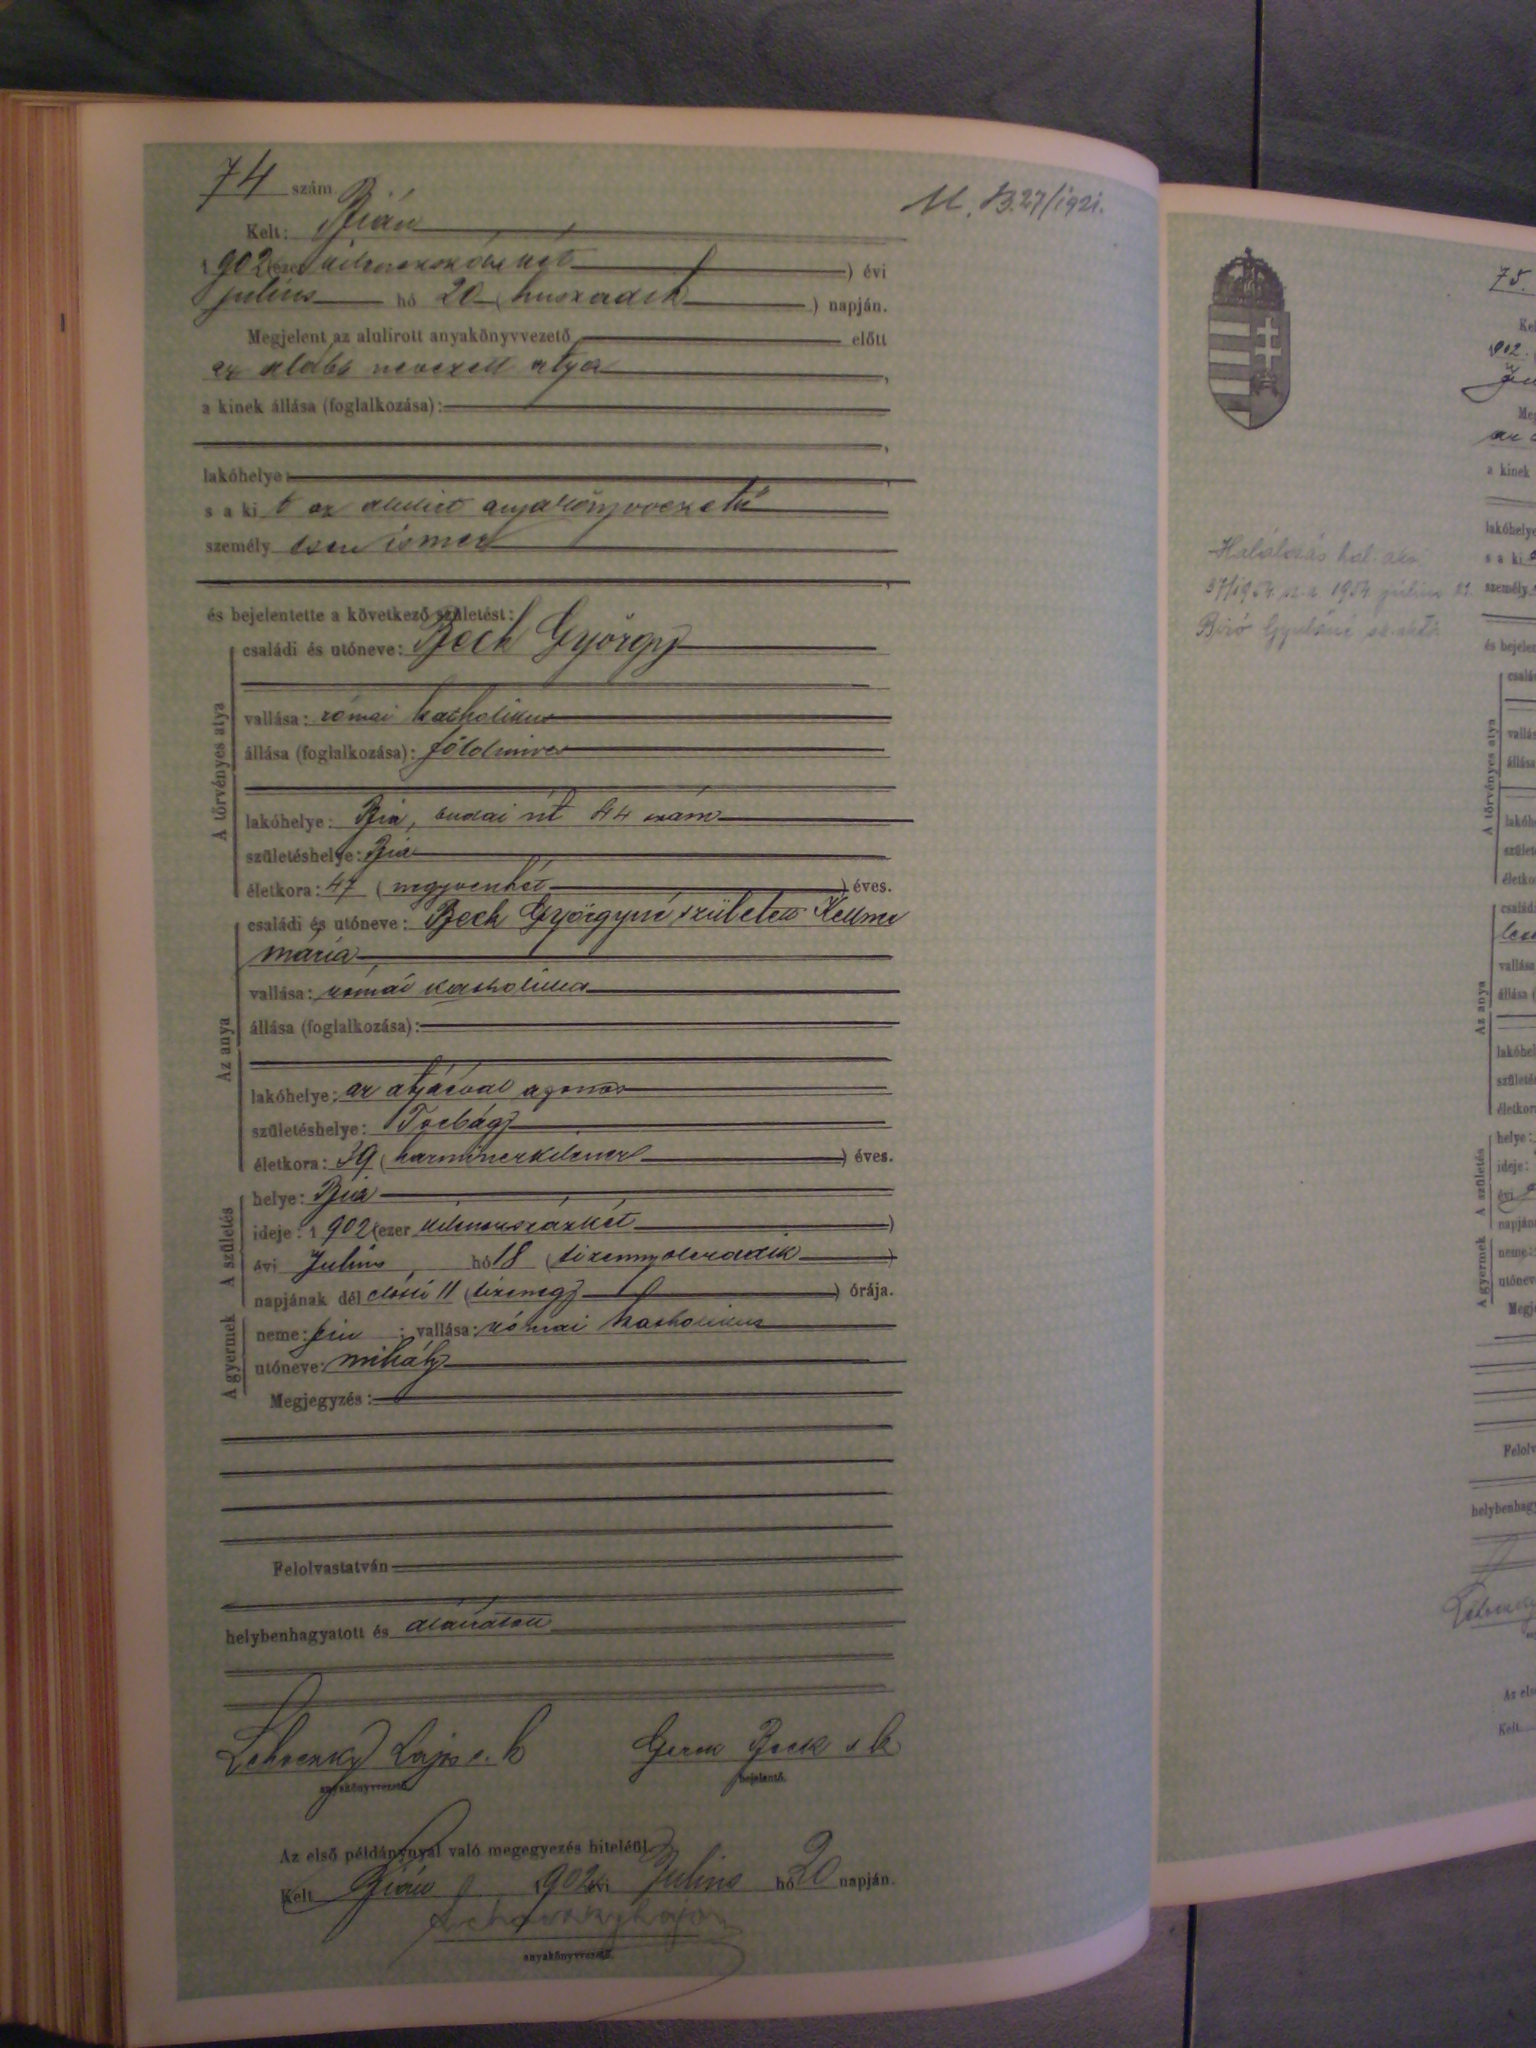 74 szám.
M. B.27/1921.
Kelt: Bián
1902 (ezer kilencszázkét) évi
julius hó 20 (huszadik) napján.
Megjelent az alulirott anyakönyvvezető előtt
az alább nevezett atya,
a kinek állása (foglalkozása):
lakóhelye:
s a kit az alulirt anyakönyvvezető
személyesen ismer
és bejelentette a következő születést:
A törvényes atya
családi és utóneve: Bech György
vallása: római katholikus
állása (foglalkozása): földmives
lakóhelye: Bia, budai út 44 szám
születéshelye: Bia
életkora: 47 (negyvenhét) éves.
Az anya
családi és utóneve: Bech Györgyné született
mária
vallása: római katholika
állása (foglalkozása):
lakóhelye: az atyáéval azonos
születéshelye: Torbágy
életkora: 39 (harminczkilencz) éves.
A születés
helye: Bia
ideje: 1902 (ezer kilenczszázkét)
évi Julius hó 18 (tizennyolczadik)
napjának dél előtti 11 (tizenegy) órája.
A gyermek
neme: fiu; vallása: római katholikus
utóneve: mihály
Megjegyzés:
Felolvastatván
helybenhagyatott és aláiratott
Lehoczky Lajos s. k
anyakönyvvezető.
Bech s k
bejelentő.
Az első példánynyal való megegyezés hiteléül.
Kelt Bián 1902 évi Julius hó 20 napján.
Lehoczky Lajos
anyakönyvvezető.
75.
Ke
1902.
Ju
Meg
az a
a kinek
lakóhelye
s a ki
személy
Halálozás hal. akv.
37/1954 sz. a 1954 július 21.
Biró Gyuláné
és bejelen
A törvényes atya
család
vallás
állása
lakóh
szület
életko
Az anya
család
vallása
állása (
lakóhel
születés
életkor
A születés
helye:
ideje:
évi
napján
A gyermek
neme:
utóneve
Megj
Felolv
helybenhagy
Lehoczky
Az els
Kelt